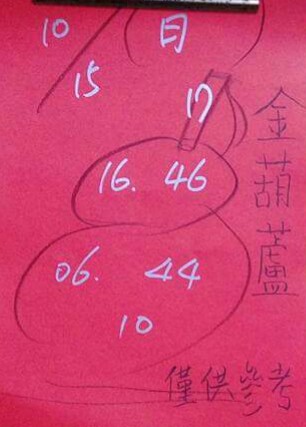 10/15 日
17
16. 46
06. 44
10
金葫蘆
僅供參考